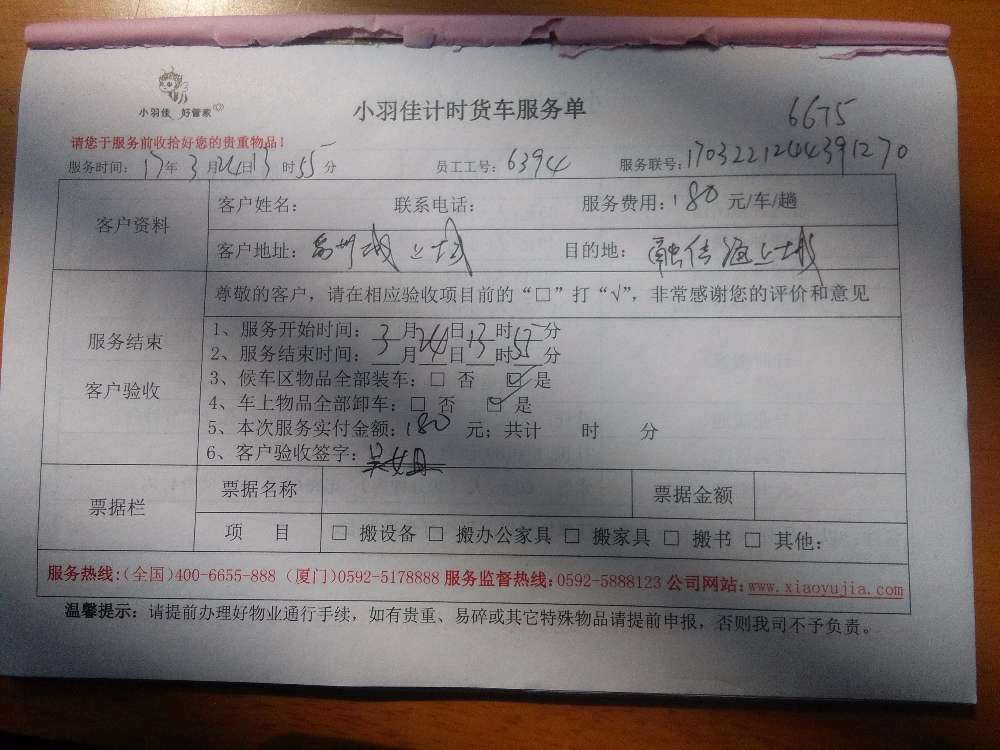 小羽佳 好管家
小羽佳计时货车服务单
6675
请您于服务前收拾好您的贵重物品!
服务时间: 17年 3月24日13时55分 员工工号: 6394 服务联号: 1703221244391270
客户资料
客户姓名: 联系电话: 服务费用: 180 元/车/趟
客户地址: 禹州城上城 目的地: 融信海上城
服务结束
客户验收
尊敬的客户，请在相应验收项目前的“□”打“√”，非常感谢您的评价和意见
1、服务开始时间: 3月24日13时55分
2、服务结束时间: 月 日 时 分
3、候车区物品全部装车: □ 否 ☑ 是
4、车上物品全部卸车: □ 否 ☑ 是
5、本次服务实付金额: 180 元; 共计 时 分
6、客户验收签字:
票据栏
票据名称 票据金额
项 目 □ 搬设备 □ 搬办公家具 □ 搬家具 □ 搬书 □ 其他:
服务热线:(全国)400-6655-888 (厦门)0592-5178888 服务监督热线:0592-5888123 公司网站:www.xiaoyujia.com
温馨提示: 请提前办理好物业通行手续，如有贵重、易碎或其它特殊物品请提前申报，否则我司不予负责。